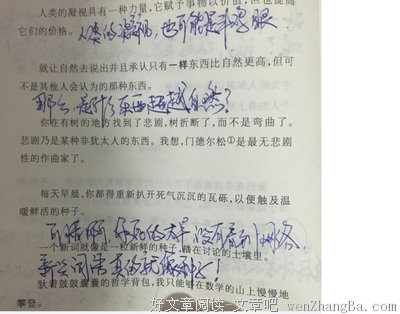 人类的凝视具有一种力量,它赋予事物以价值,但也提高
它们的价格。
人类的凝视,也可能是斗鸡眼
就让自然去说出并且承认只有一样东西比自然更高,但可
不是其他人会认为的那种东西。
那么是什么东西超越自然?
你在有树的地方找到了悲剧,树折断了,而不是弯曲了。
悲剧乃是某种非犹太人的东西。我想,门德尔松①是最无悲剧
性的作曲家了。
每天早晨,你都得重新扒开死气沉沉的瓦砾,以便触及温
暖鲜活的种子。
可惜啊 你死的太早 没有看到网络
一个新词就像是一粒新鲜的种子,播在讨论的土壤里。
新兴词语真的就像种子!
驮着鼓鼓囊囊的哲学背包,我只能够在数学的山上慢慢地
攀登。
好文章阅读 文章吧 wenZhangBa.com